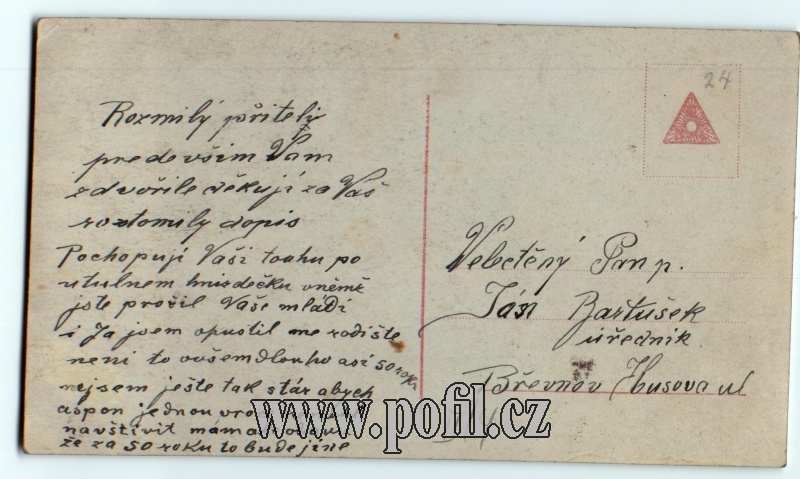 Rozmilý příteli
predevším Vam
zdvořile děkuji za Vaš
roztomily dopis
Pochopuji Vaši touhu po
utulnem hnizdečku vněmž
jste prožil Vaše mládi
i Ja jsem opustil me rodište
neni to ovšem dlouho asi 50 roku
nejsem ješte tak stár abych
aspon jednou
navštivit
že za 50 roku to bude jine
24
Velectěný Pan p.
Ján Bartušek
úředník
Břevnov Husova ul
www.pofil.cz